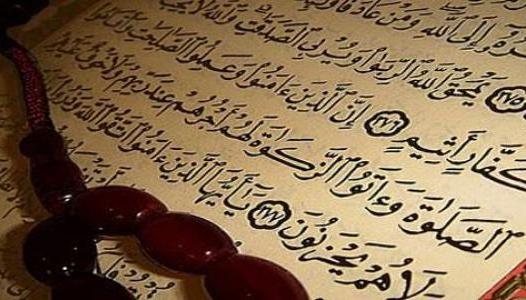 إِلَى ٱللَّهِ وَمَنْ عَادَ
٢٧٥ يَمْحَقُ ٱللَّهُ ٱلرِّبَوٰا۟ وَيُرْبِى ٱلصَّدَقَٰتِ وَٱللَّهُ لَا يُحِبُّ
كَفَّارٍ أَثِيمٍ ٢٧٦ إِنَّ ٱلَّذِينَ ءَامَنُوا۟ وَعَمِلُوا۟ ٱلصَّٰلِحَٰتِ وَأَقَامُوا۟
ٱلصَّلَوٰةَ وَءَاتَوُا۟ ٱلزَّكَوٰةَ لَهُمْ أَجْرُهُمْ عِندَ رَبِّهِمْ وَلَا خَوْفٌ عَلَيْهِمْ
وَلَا هُمْ يَحْزَنُونَ ٢٧٧ يَٰٓأَيُّهَا ٱلَّذِينَ ءَامَنُوا۟ ٱتَّقُوا۟ ٱللَّهَ وَذَرُوا۟